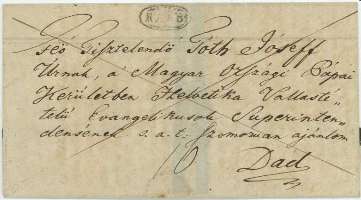 RAAB
Fő Tisztelendő Tóth Jóseff
Úrnak, a Magyar Országi Pápai
Kerületben Helvetika Vallasté-
telű Evangelikusok Superinten-
densének s. a. t. Szomoruan ajánlom
Dad